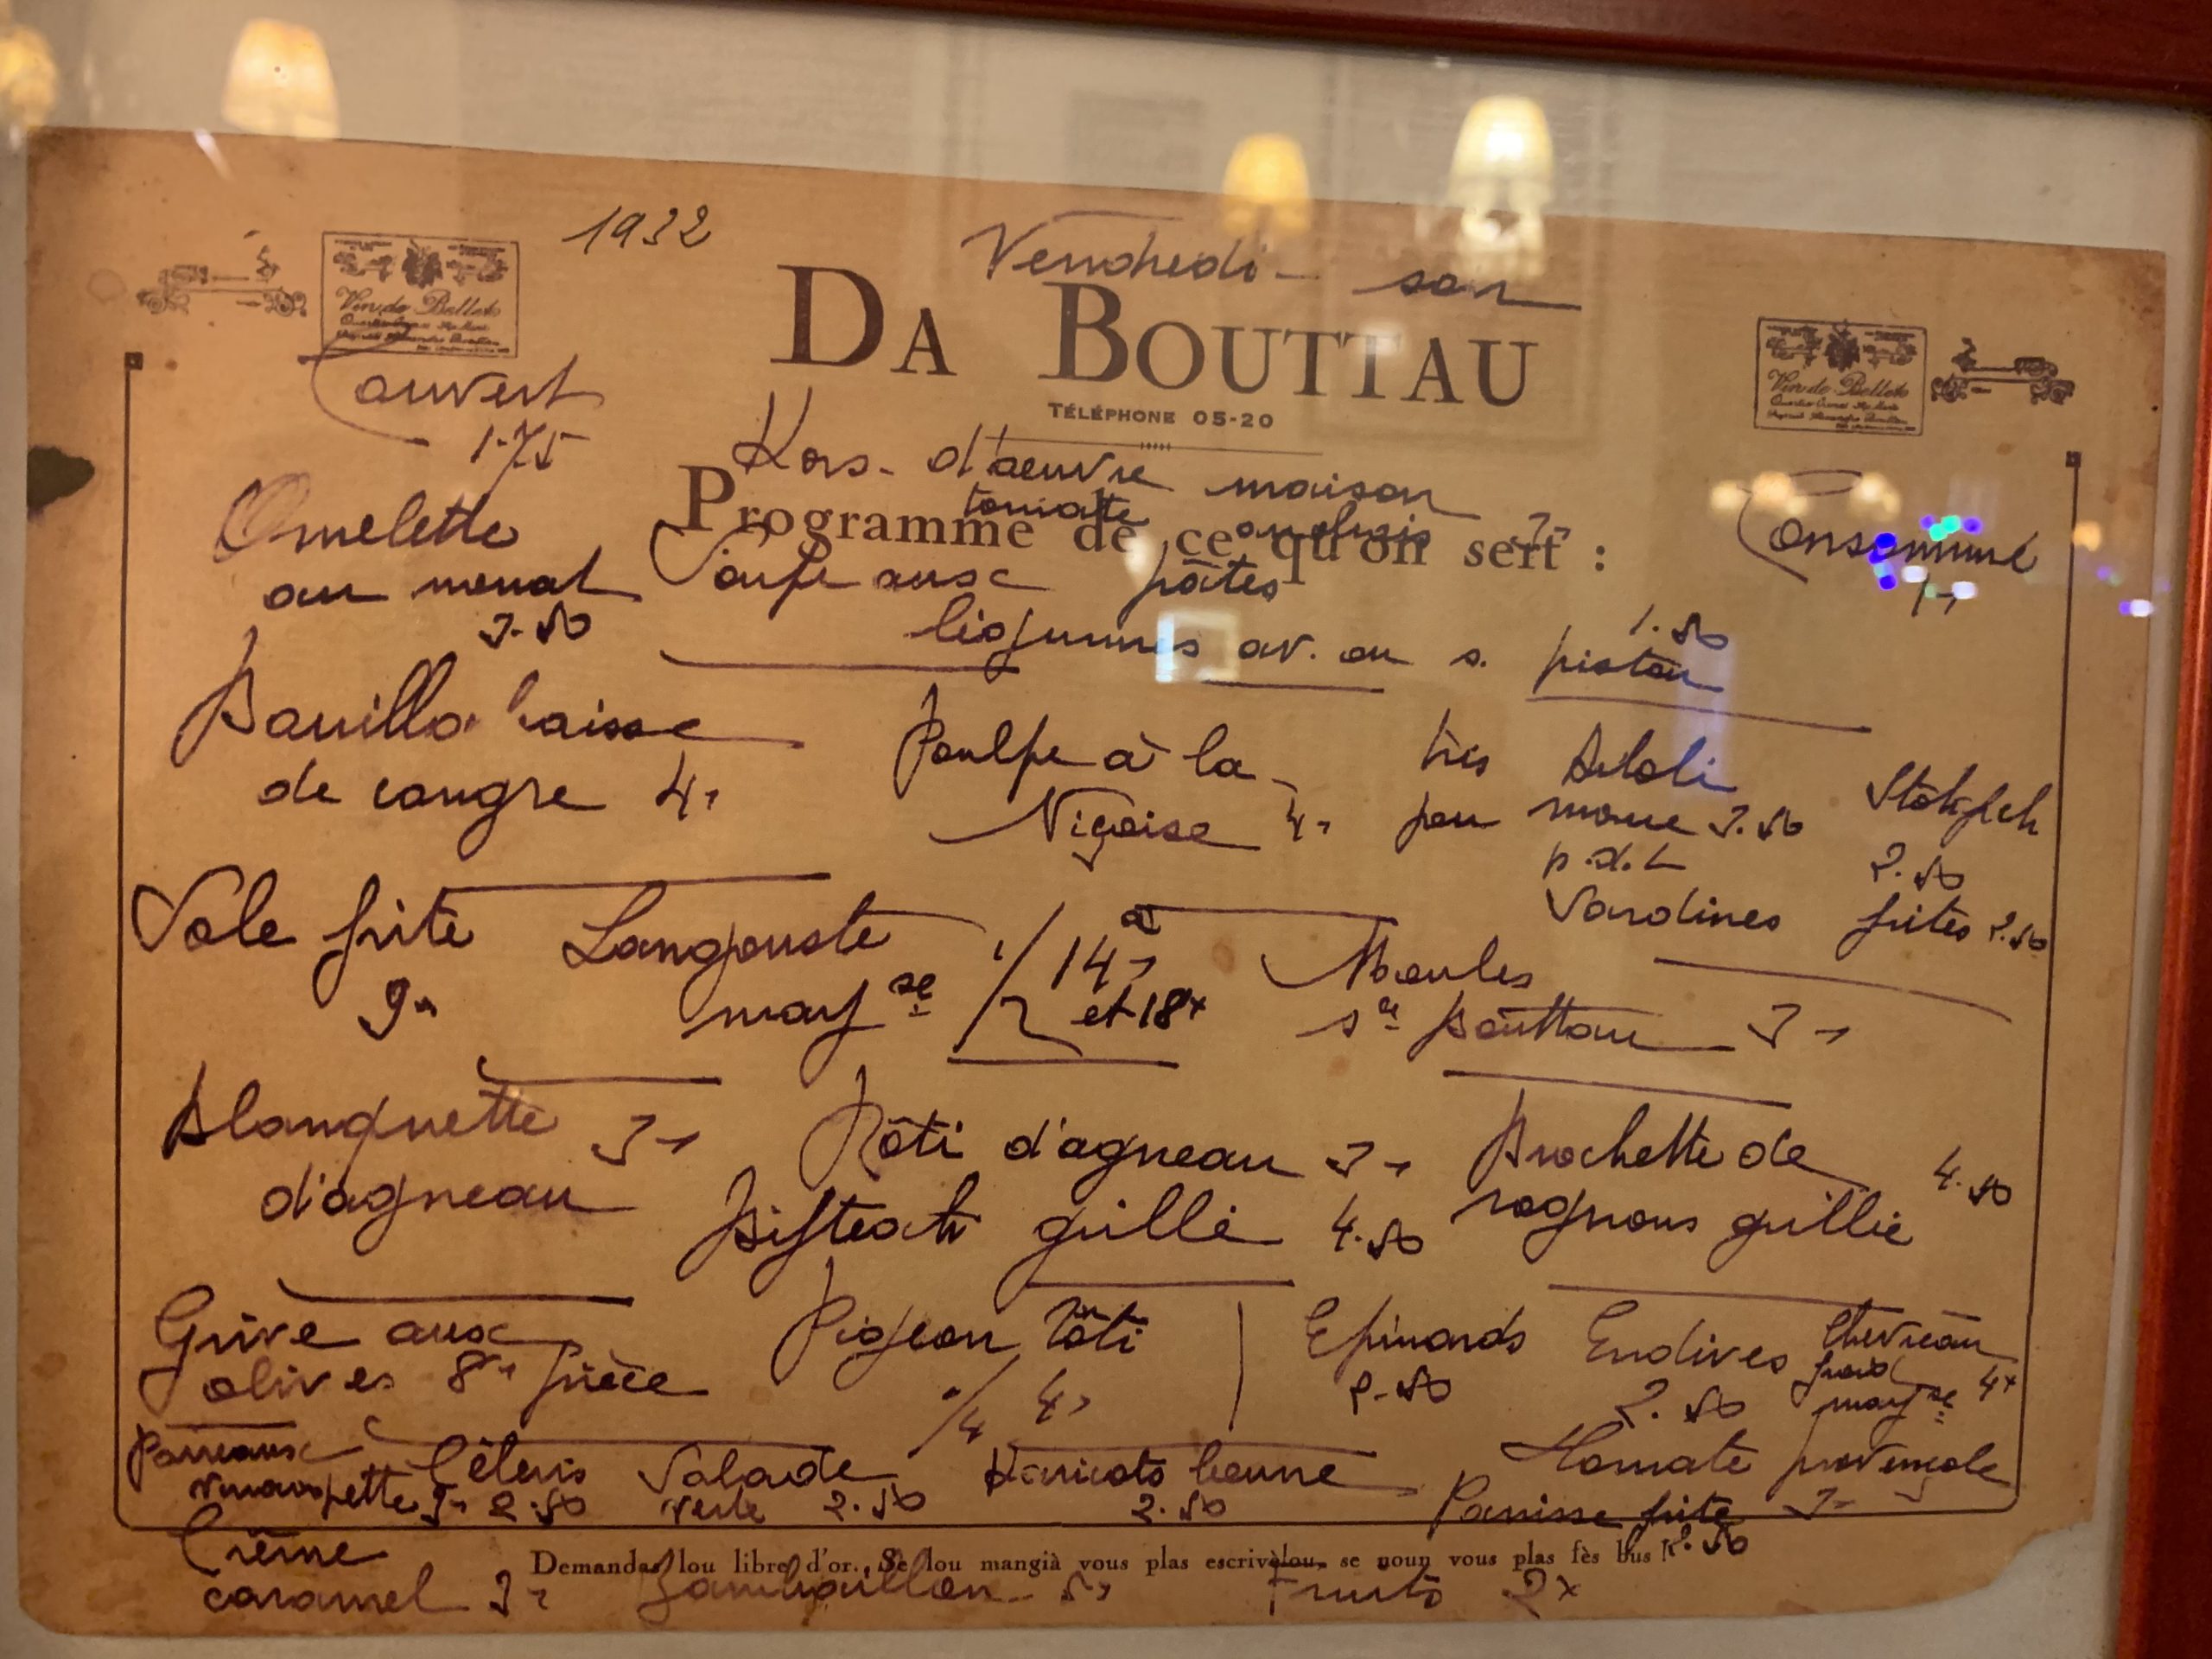 1932
Vendredi - soir
Vin de Bellet
Vin de Bellet
DA BOUTTAU
TÉLÉPHONE 05-20
Couvert
1-75
Hors-d'œuvre maison
tomate anchois 3-
Programme de ce qu'on sert :
Omelette
au menat
3.50
Soupe aux pâtes
légumes av. ou s. pistou
1.50
Consommé
1-
Bouillabaisse
de congre 4-
Poulpe à la
Niçoise 4-
très
peu
Aïoli
morue 3.50
p.d.t
Stokfich
2.50
Sardines frites 2.50
Sole frite
9-
Langouste
mayse 1/2 14- à
et 18-
Moules
sce Bouttau 3-
Blanquette 3-
d'agneau
Rôti d'agneau 3-
Bifteck grillé 4.50
Brochette de
rognons grillé 4.50
Grive aux
olives 8- pièce
Pigeon rôti
1/4 4-
Epinards
2.50
Endives
2.50
Chevreau
froid
mayse 4-
Poireaux
vinaigrette 3-
Céleris
2.50
Salade
verte 2.50
Haricots beurre
2.50
Tomate provençale
3-
Panisse frite
2.50
Crème
caramel 3-
Demandas lou libre d'or. Se lou mangià vous plas escrivèlou, se noun vous plas fès bus !
Sambaillon 5-
Fruits 2-